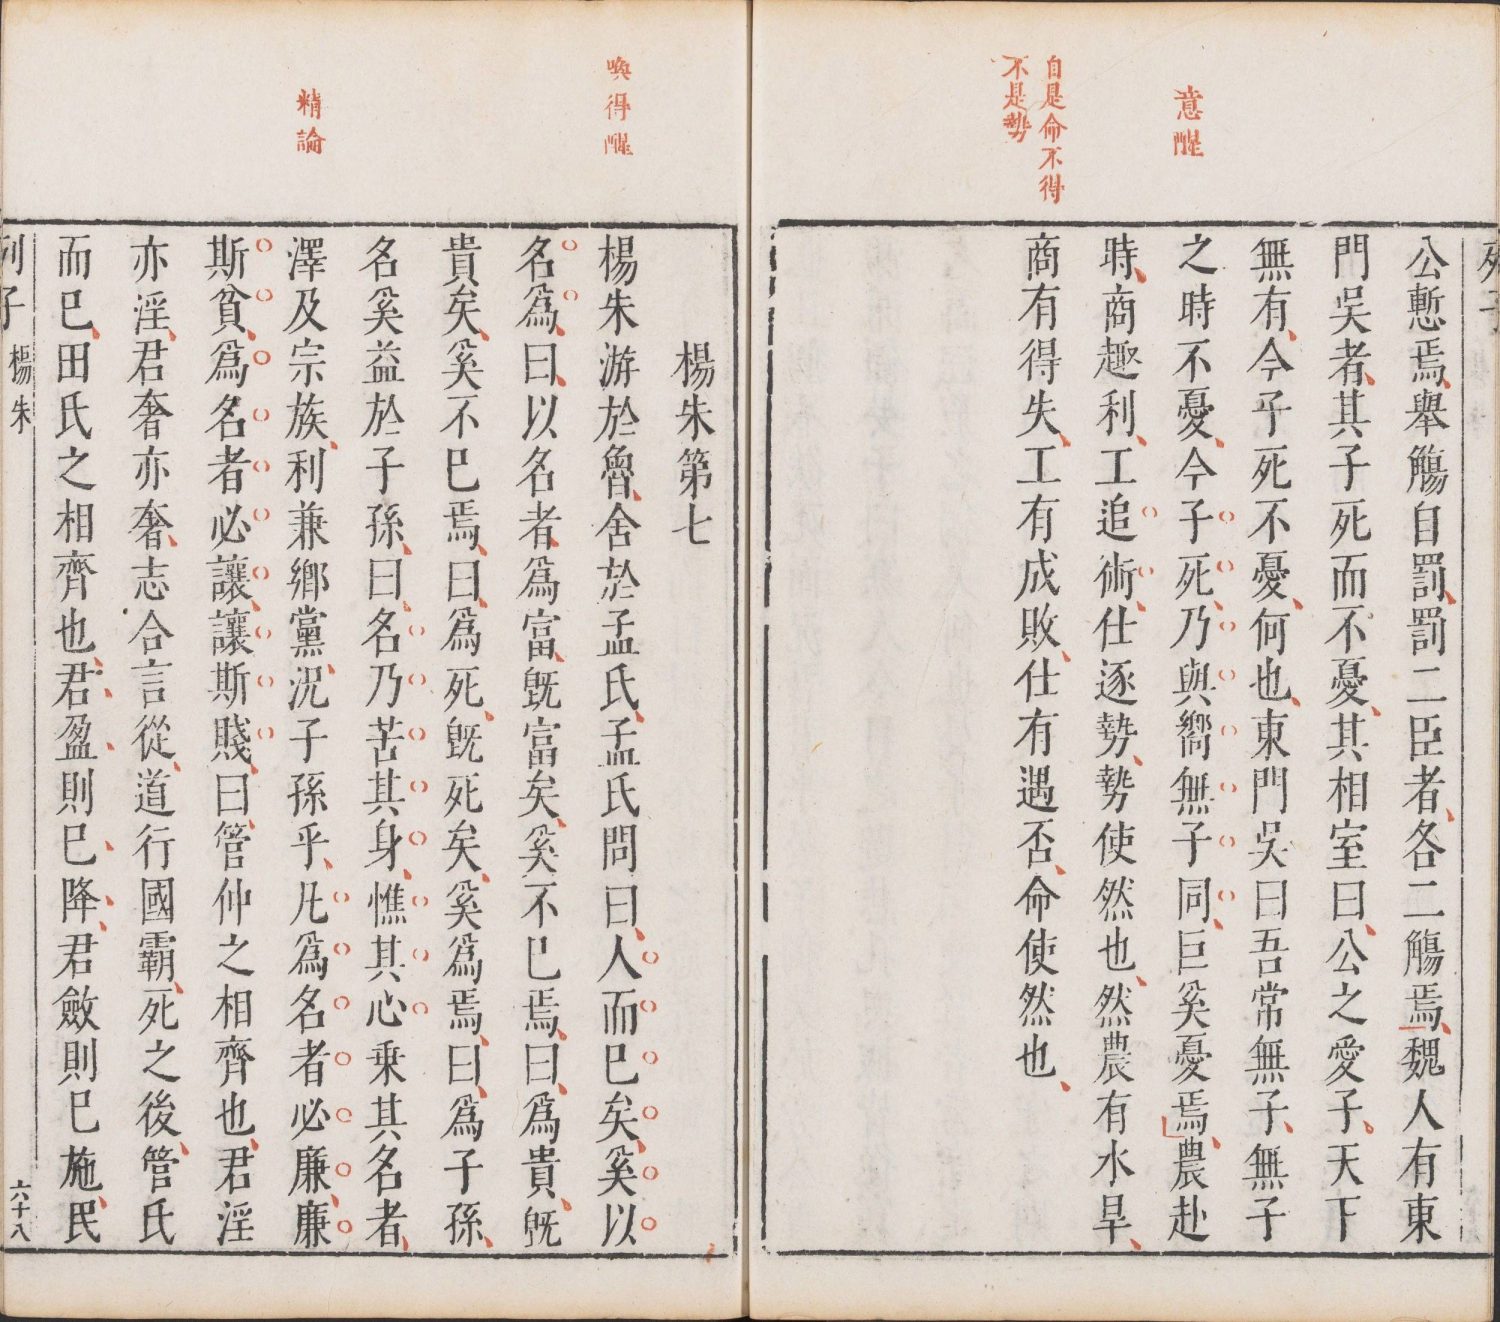 意醒
自是命不得
不是勢
公慙焉舉觴自罰罰二臣者各二觴焉魏人有東
門吳者其子死而不憂其相室曰公之愛子天下
無有今子死不憂何也東門吳曰吾常無子無子
之時不憂今子死乃與嚮無子同臣奚憂焉農赴
時商趣利工追術仕逐勢勢使然也然農有水旱
商有得失工有成敗仕有遇否命使然也
喚得醒
精論
楊朱第七
楊朱游於魯舍於孟氏孟氏問曰人而已矣奚以
名爲曰以名者爲富旣富矣奚不已焉曰爲貴旣
貴矣奚不已焉曰爲死旣死矣奚爲焉曰爲子孫
名奚益於子孫曰名乃苦其身憔其心乗其名者
澤及宗族利兼鄉黨況子孫乎凡爲名者必廉廉
斯貧爲名者必讓讓斯賤曰管仲之相齊也君淫
亦淫君奢亦奢志合言從道行國霸死之後管氏
而已田氏之相齊也君盈則已降君斂則已施民
列子
楊朱
六十八